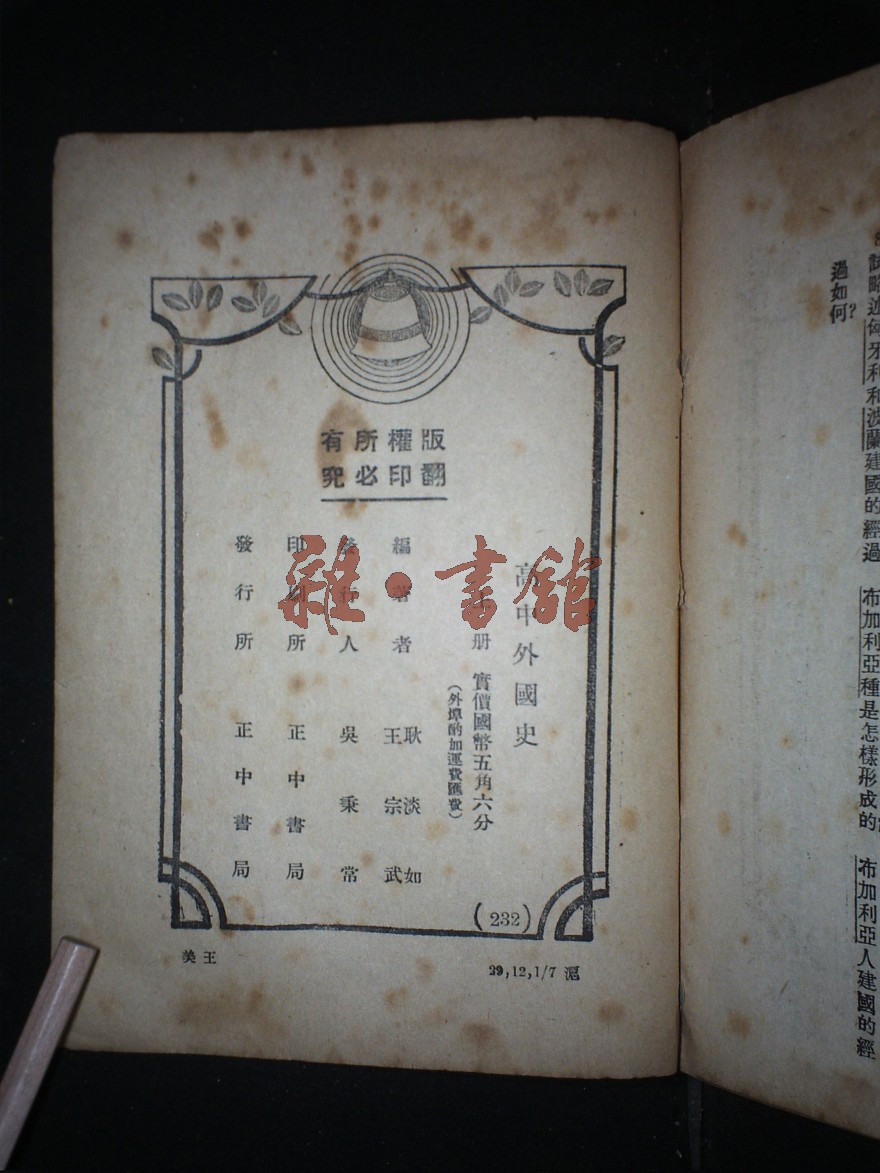 版權所有
翻印必究
高中外國史
册 實價國幣五角六分
(外埠酌加運費匯費)
編著者 耿淡如
王宗武
發行人 吳秉常
印刷所 正中書局
發行所 正中書局
(232)
王美
29,12,1/7 滬
雜·書館
試略述匈牙利和波蘭建國的經過
布加利亞種是怎樣形成的
布加利亞人建國的經
過如何?